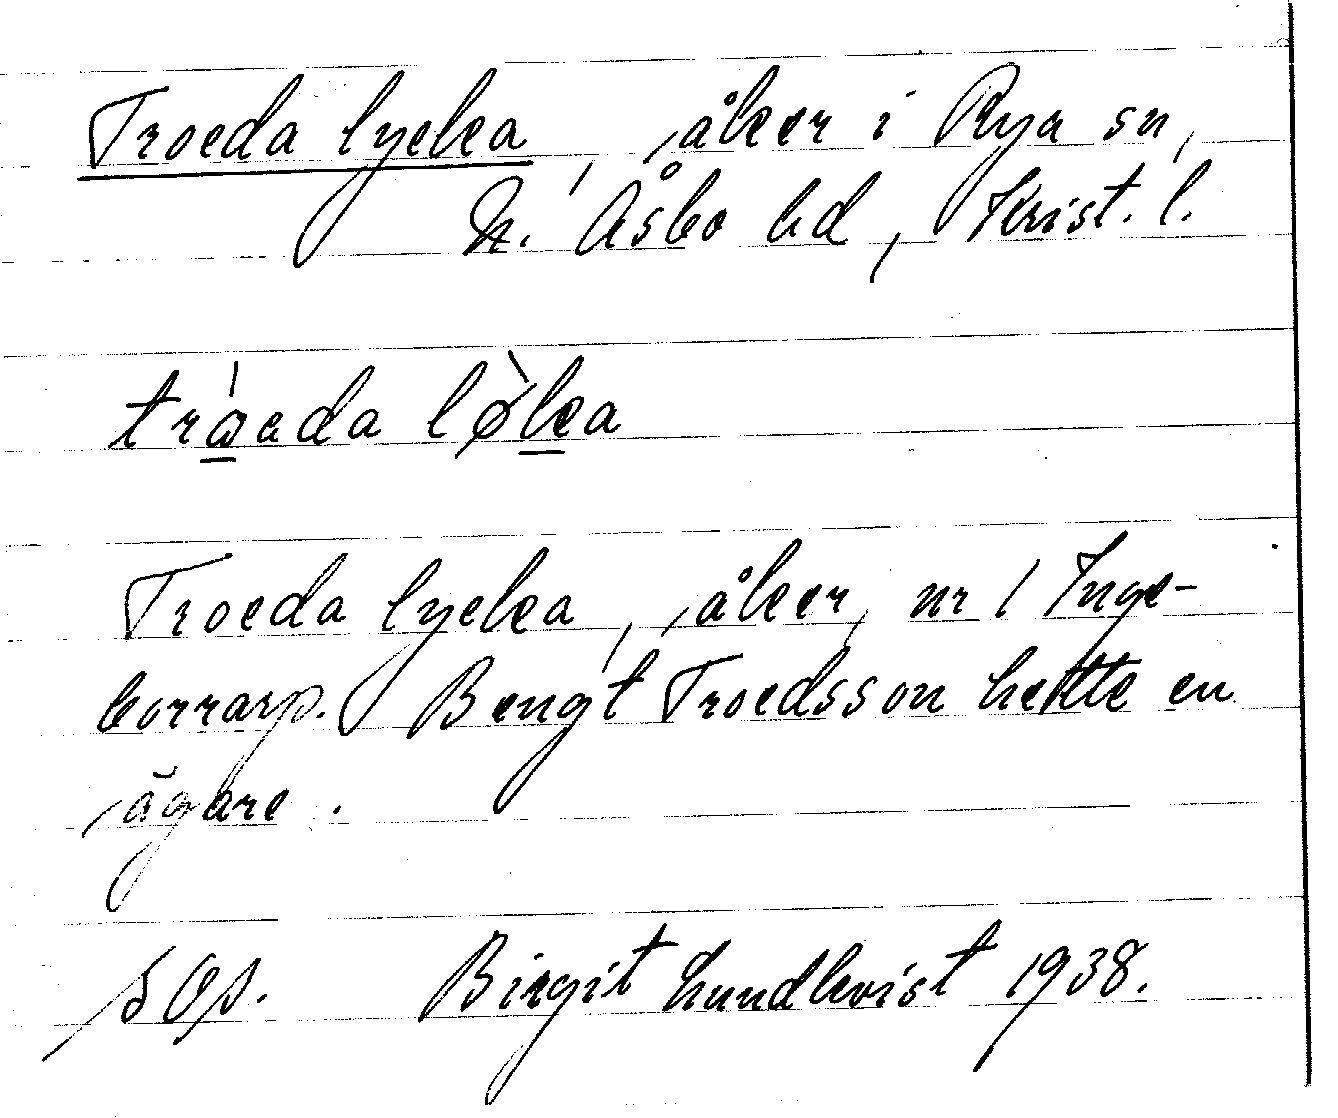 Troeda lycka, åker i Rya sn,
N. Åsbo hd, Krist. l.
tròeda lø̀ka
Troeda lycka, åker, nr 1 Inge-
borrarp. Bengt Troedsson hette en
ägare.
Birgit Lundkvist 1938.